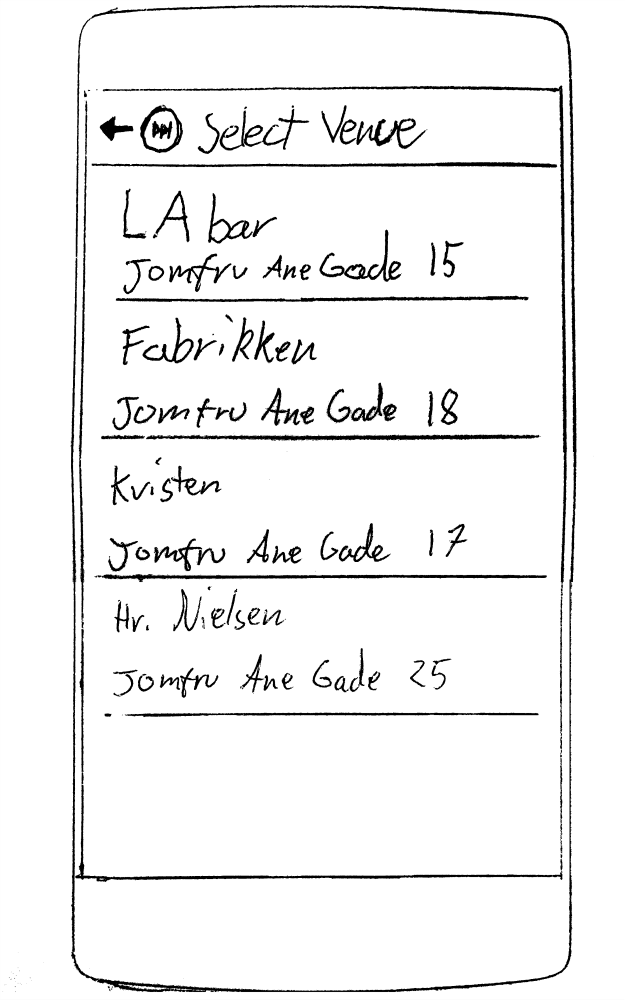 Select Venue
LA bar
Jomfru Ane Gade 15
Fabrikken
Jomfru Ane Gade 18
Kvisten
Jomfru Ane Gade 17
Hr. Nielsen
Jomfru Ane Gade 25